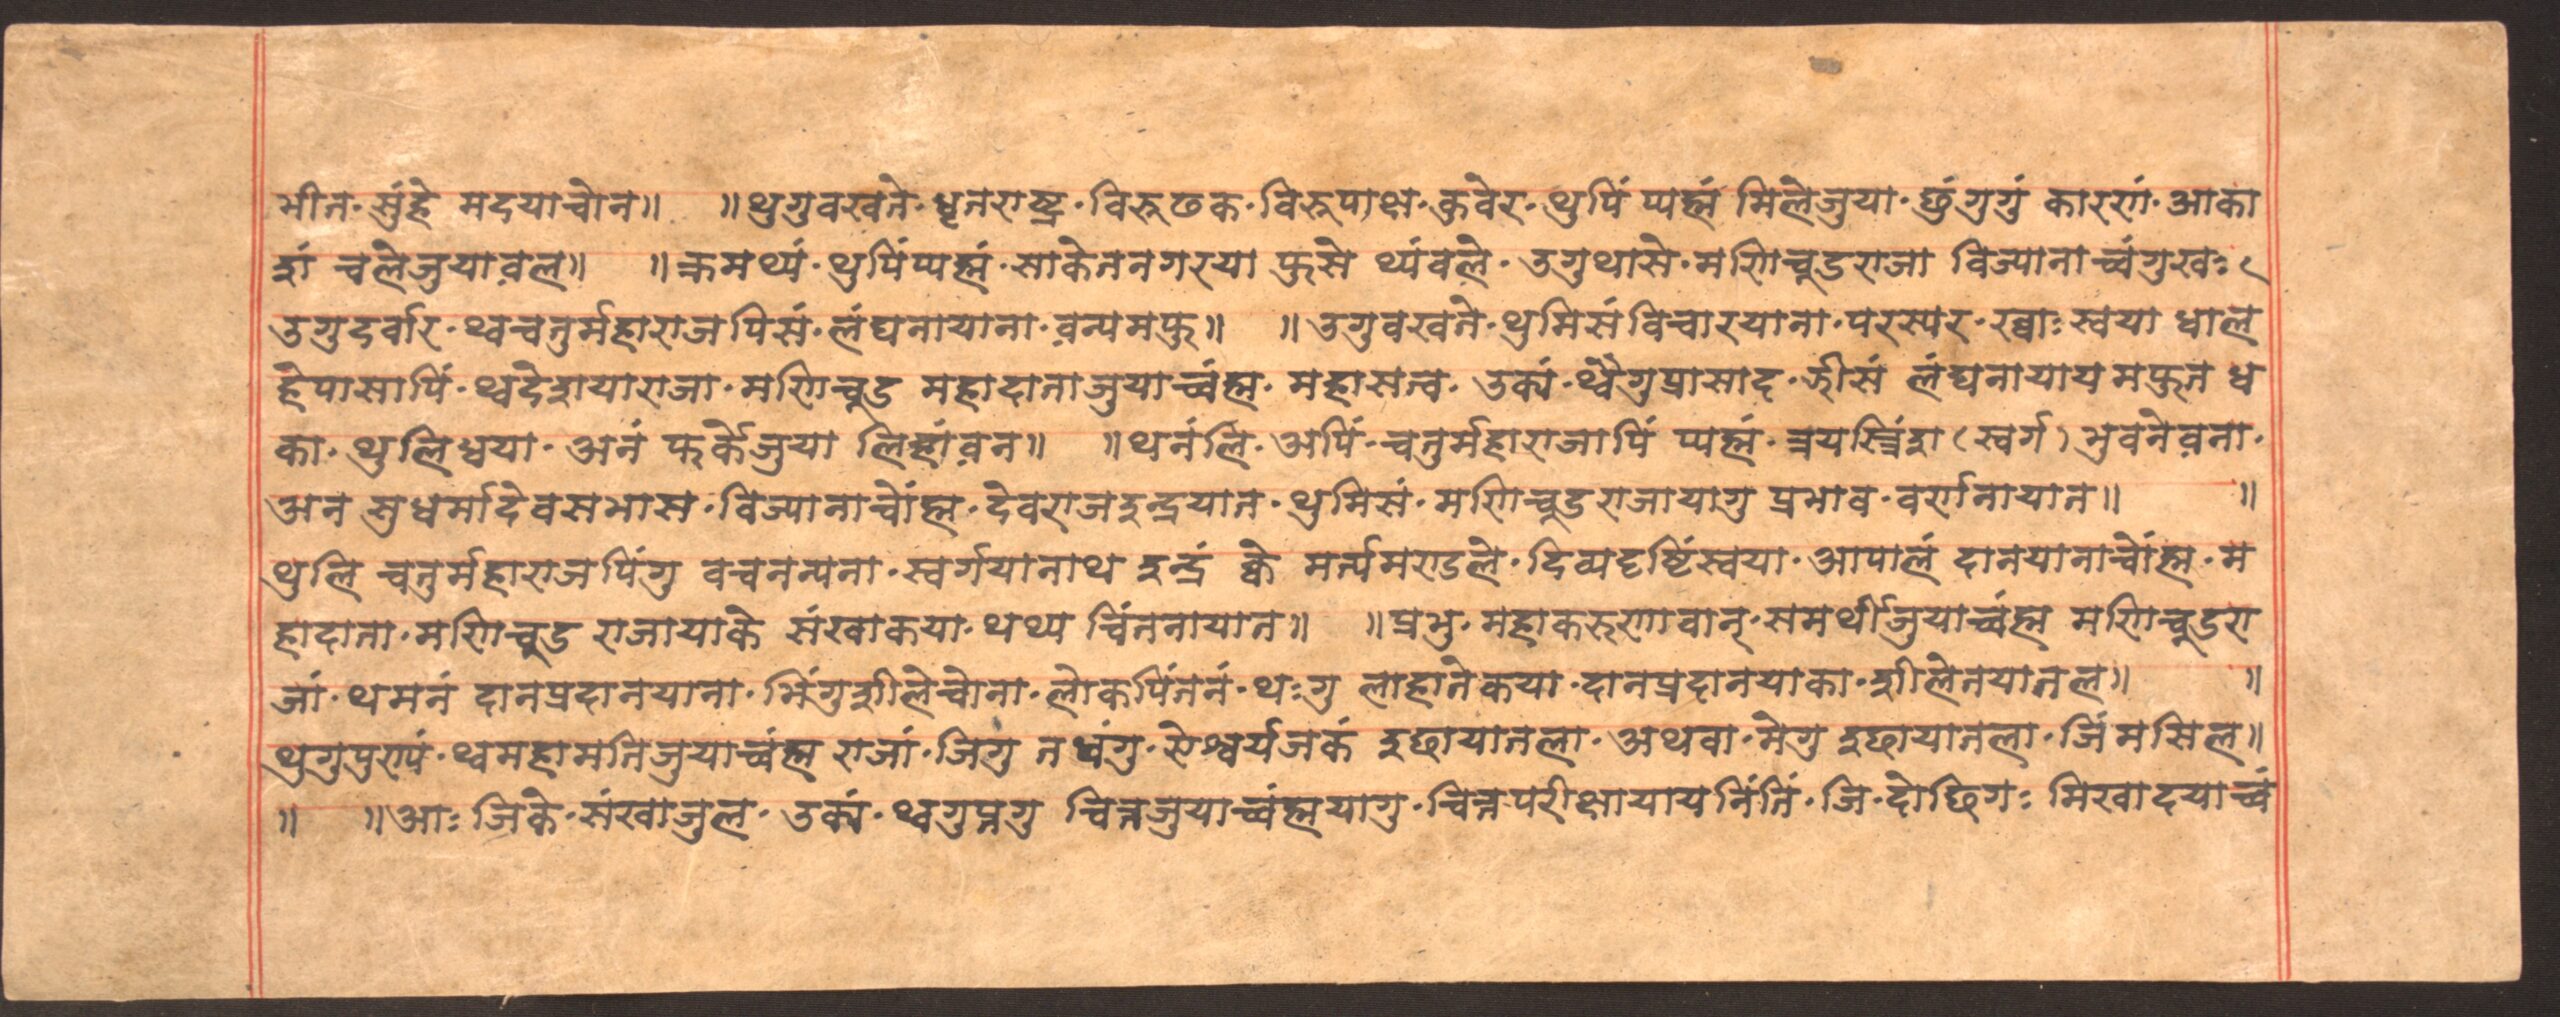 भीत·सुंहे मदयाचोन॥ ॥थुगुवखते·धृतराष्ट्र·विरूढक·विरूपाक्ष·कुवेर·थुपिं प्यह्मं मिलेजुया·छुंगुगुं कारणं·आका
शं चलेजुयावल॥ ॥क्रमथ्यं·थुपिंप्यह्मं·साकेतनगरया फुसे थ्यंवले·उगुथासे·मणिचूडराजा विज्यानाच्वंगुखः
उगुदर्वार·थ्वचतुर्महाराजपिसं·लंघनायाना·वन्यमफु॥ ॥उगुवखते·थुमिसंविचारयाना·परस्पर·ख्वाःस्वया धाल
हेपासापिं·थ्वदेशयाराजा·मणिचूड महादाताजुयाच्वंह्म·महासत्व·उक्यं·थ्वैगुप्रासाद·झीसं लंघनायायमफुत ध
का·थुलिधया·अनं फर्केजुया लिहांवन॥ ॥थनंलि·अपिं·चतुर्महाराजापिं प्यह्मं·त्रयस्त्रिंश (स्वर्ग) भुवनेवना·
अन सुधर्मादेवसभास·विज्यानाचोंह्म·देवराजइन्द्रयात·थुमिसं·मणिचूडराजायागु प्रभाव·वर्णनायात॥ ॥
थुलि चतुर्महाराजपिंगु वचनन्यना·स्वर्गयानाथ इन्द्रं क्वे मर्त्यमण्डले·दिव्यदृष्टिंस्वया·आपालं दानयानाचोंह्म·म
हादाता·मणिचूड राजायाके संखाकया·थथ्य चिंतनायात॥ ॥प्रभु·महाकरूणावान्·समर्थीजुयाच्वंह्म मणिचूडरा
जां·थमनं दानप्रदानयाना·भिंगुशीलेचोना·लोकपिंतनं·थःगु लाहातेकया·दानप्रदानयाका·शीलेतयातल॥ ॥
थुगुपुण्यं·थ्वमहामतिजुयाच्वंह्म राजां·जिगु तधंगु·ऐश्वर्यजकं इछायातला·अथवा·मेगु इछायातला·जिं मसिल॥
॥ ॥आः जिके·संखाजुल·उक्यं·थ्वगुप्तगु चित्तजुयाच्वंह्मयागु·चित्तपरीक्षायायनिंतिं·जि·दोछिगः मिखादयाच्वं